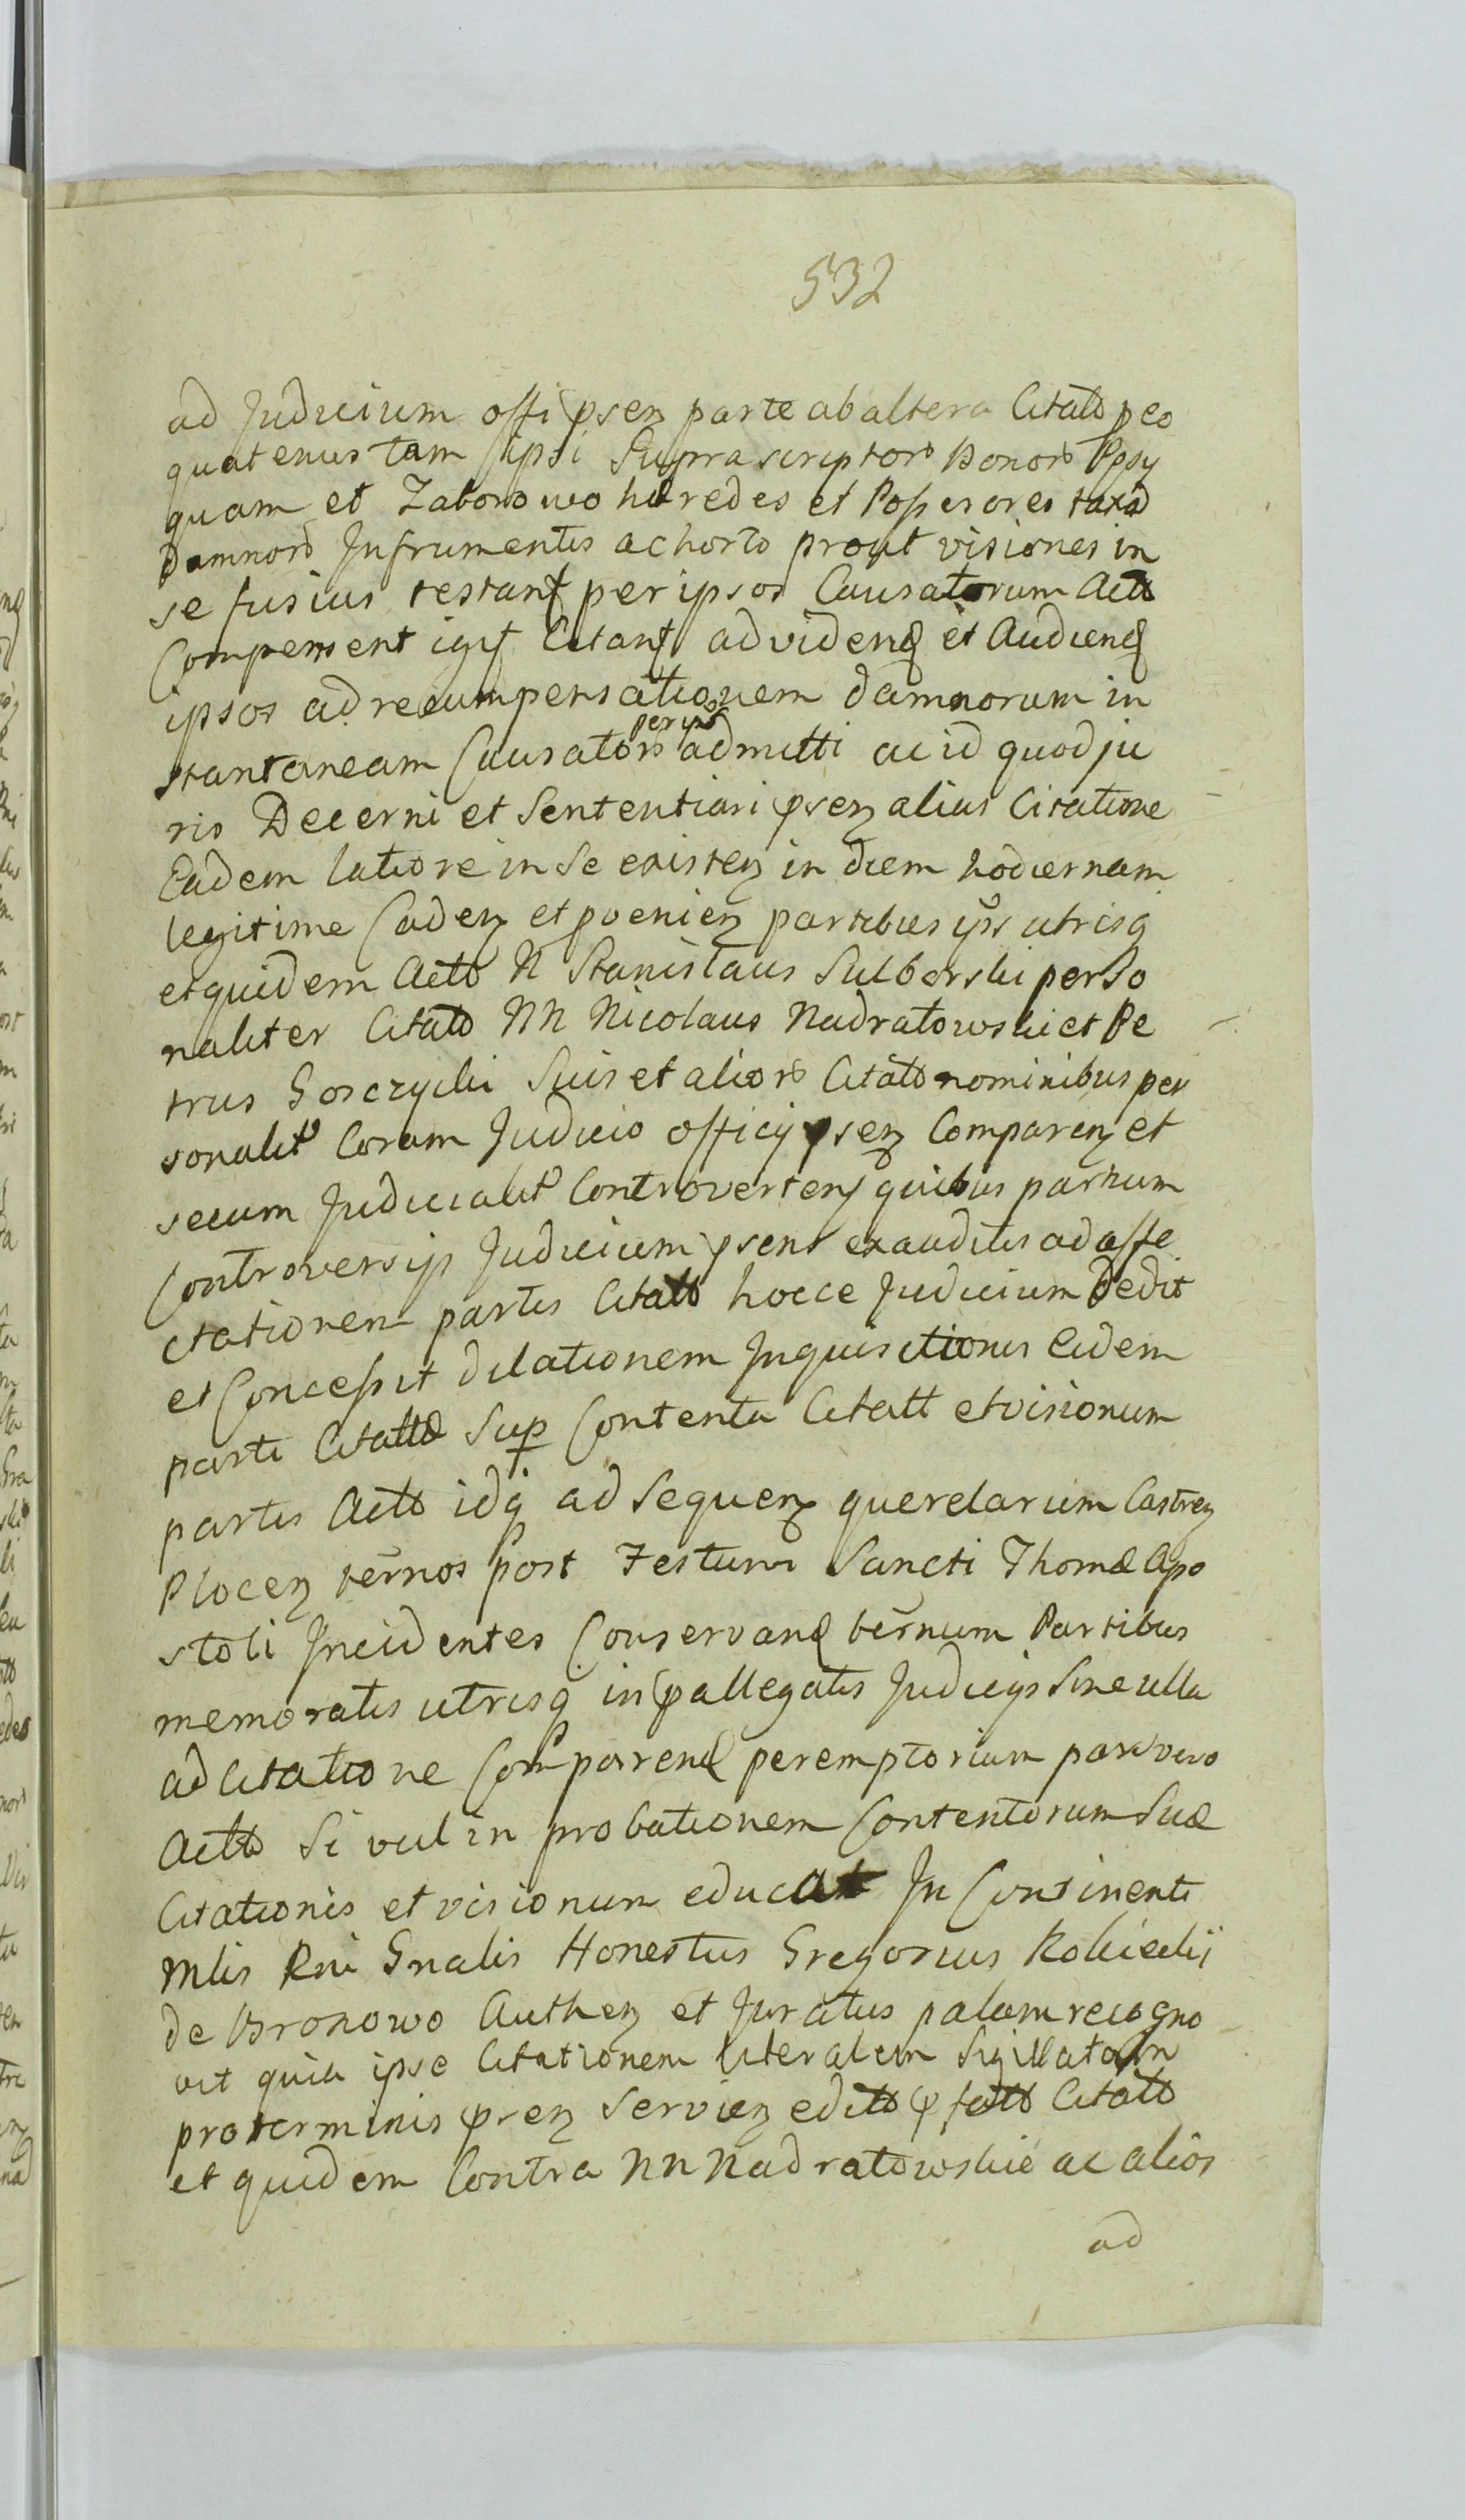 532
ad Judicium offi psen parte ab altera Citato peo
quatenus tam ipsi Suprascriptor Bonor
quam et Zabonowo hæredes et Possesores taxa
Damnor Infrumentis ac horto prout visiones in
se fusius testant per ipsos Causatorum Acto
Compensent igit Citant ad videnđ et Audienđ
ipsos ad recumpensationem damnorum in
stantaneam Causator per ipsos admitti ac id quod ju
ris Decerni et Sententiari psen alias Citatione
Eadem latiore in Se existen in diem hodiernam
legitime Caden et pvenien partibus ijs utrisq
et quidem Acto N Stanislaus Sulborski perso
naliter Citato NN Nicolaus Nadratowski et Pe
trus Gosczycki Suis et alior Citato nominibus per
sonalit Coram Judicio officij psen Comparen et
secum Judicialit Controverten quibus partium
Controversijs Judicium psens exauditis ad affe
ctationem partis Citato hocce Judicium Dedit
et Concessit dilationem Inquisitionis Eidem
parti Citatæ Sup Contenta Citatt et visionum
partis Acto idq ad Sequen querelarum Castren
Plocen ternos post Festum Sancti Thomæ Apo
stoli Incidentes Conservanđ ternum Partibus
memoratis utrisq in pallegatis Judicijs Sine ulla
adcitatione Comparenđ peremptorium pars vero
Acto Si vul in probationem Contentorum Suæ
Citationis et visionum educat In Continenti
Mlis Rni Gnalis Honestus Gregorius Kobiedij
de Bronowo Authen et Juratus palam recogno
vit quia ipse Citationem literalem Sigillatam
pro terminis pren Servien edito Citato
et quidem Contra NN Nadratowskie ac alios
ad